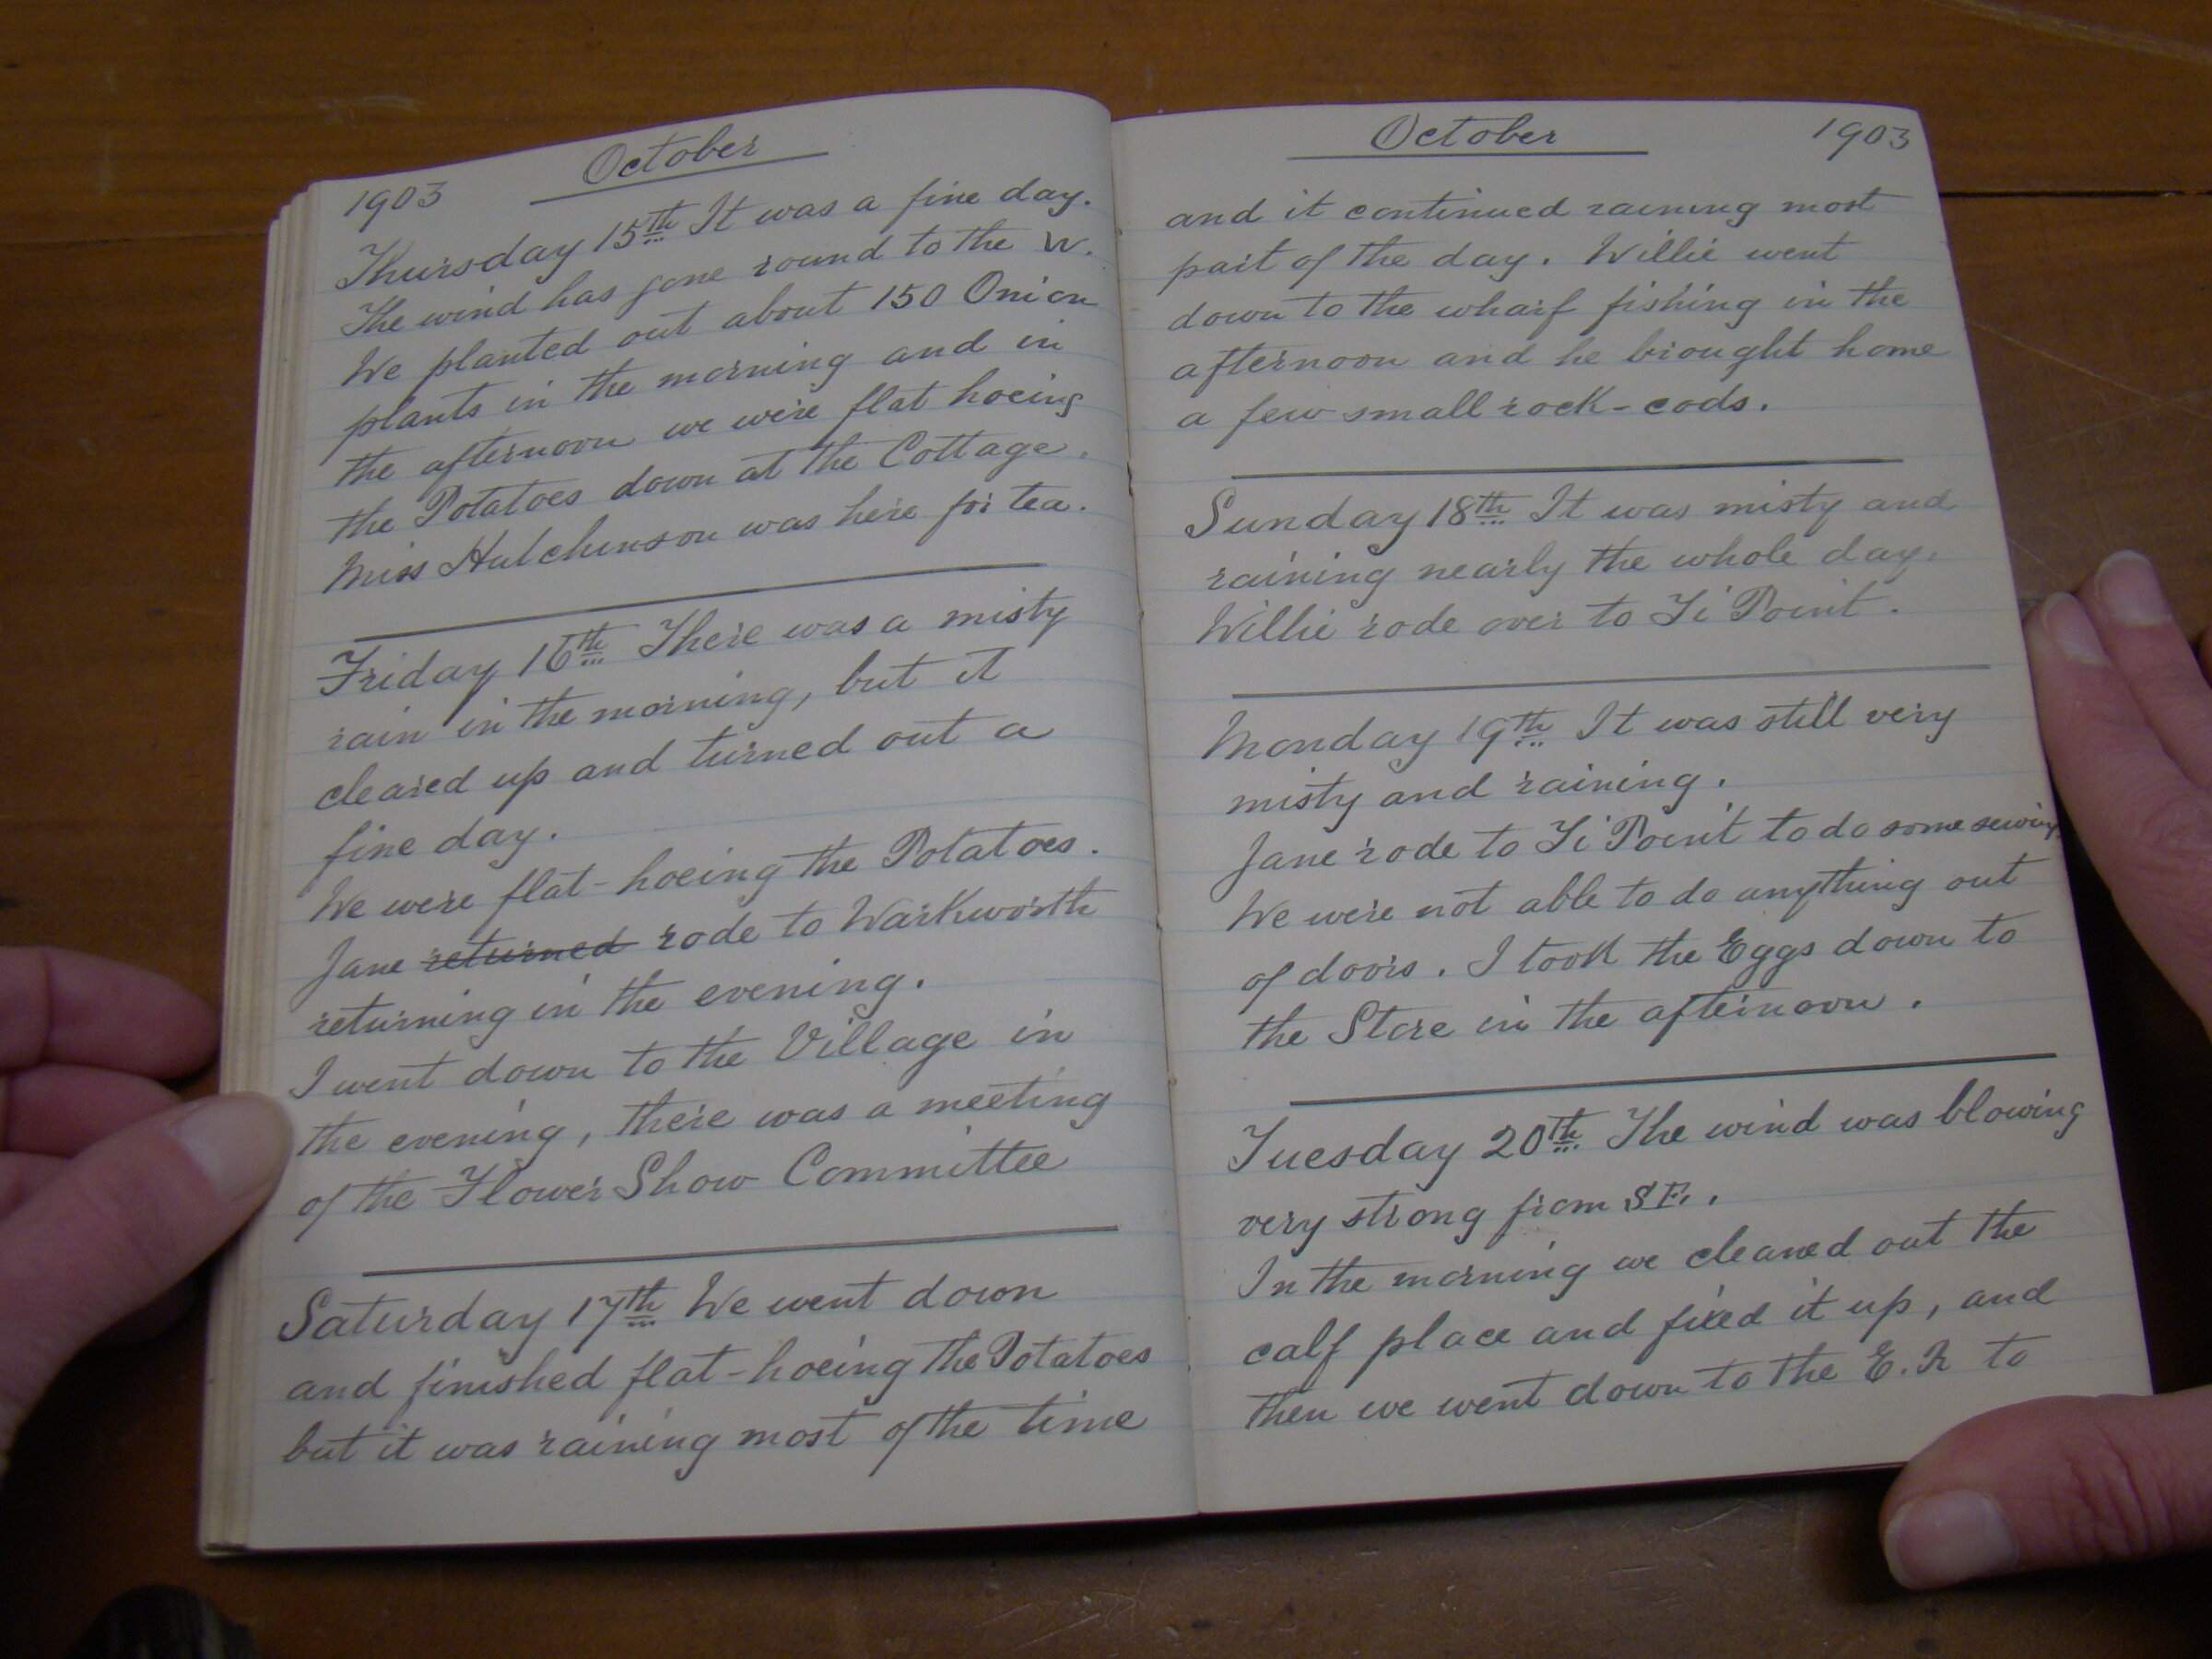 October
1903
Thursday 15th It was a fine day.
The wind has gone round to the W.
We planted out about 150 Onion
plants in the morning and in
the afternoon we were flat hoeing
the Potatoes down at the Cottage.
Miss Hutchinson was here for tea.
Friday 16th There was a misty
rain in the morning, but it
cleared up and turned out a
fine day.
We were flat-hoeing the Potatoes.
Jane returned rode to Warkworth
returning in the evening.
I went down to the Village in
the evening, there was a meeting
of the Flower Show Committee
Saturday 17th We went down
and finished flat-hoeing the Potatoes
but it was raining most of the time
October 1903
and it continued raining most
part of the day. Willie went
down to the wharf fishing in the
afternoon and he brought home
a few small rock-cods.
Sunday 18th It was misty and
raining nearly the whole day.
Willie rode over to Ti Point.
Monday 19th It was still very
misty and raining.
Jane rode to Ti Point to do some sewing
We were not able to do anything out
of doors. I took the Eggs down to
the Store in the afternoon.
Tuesday 20th The wind was blowing
very strong from SE.
In the morning we cleaned out the
calf place and fixed it up, and
then we went down to the E.R to